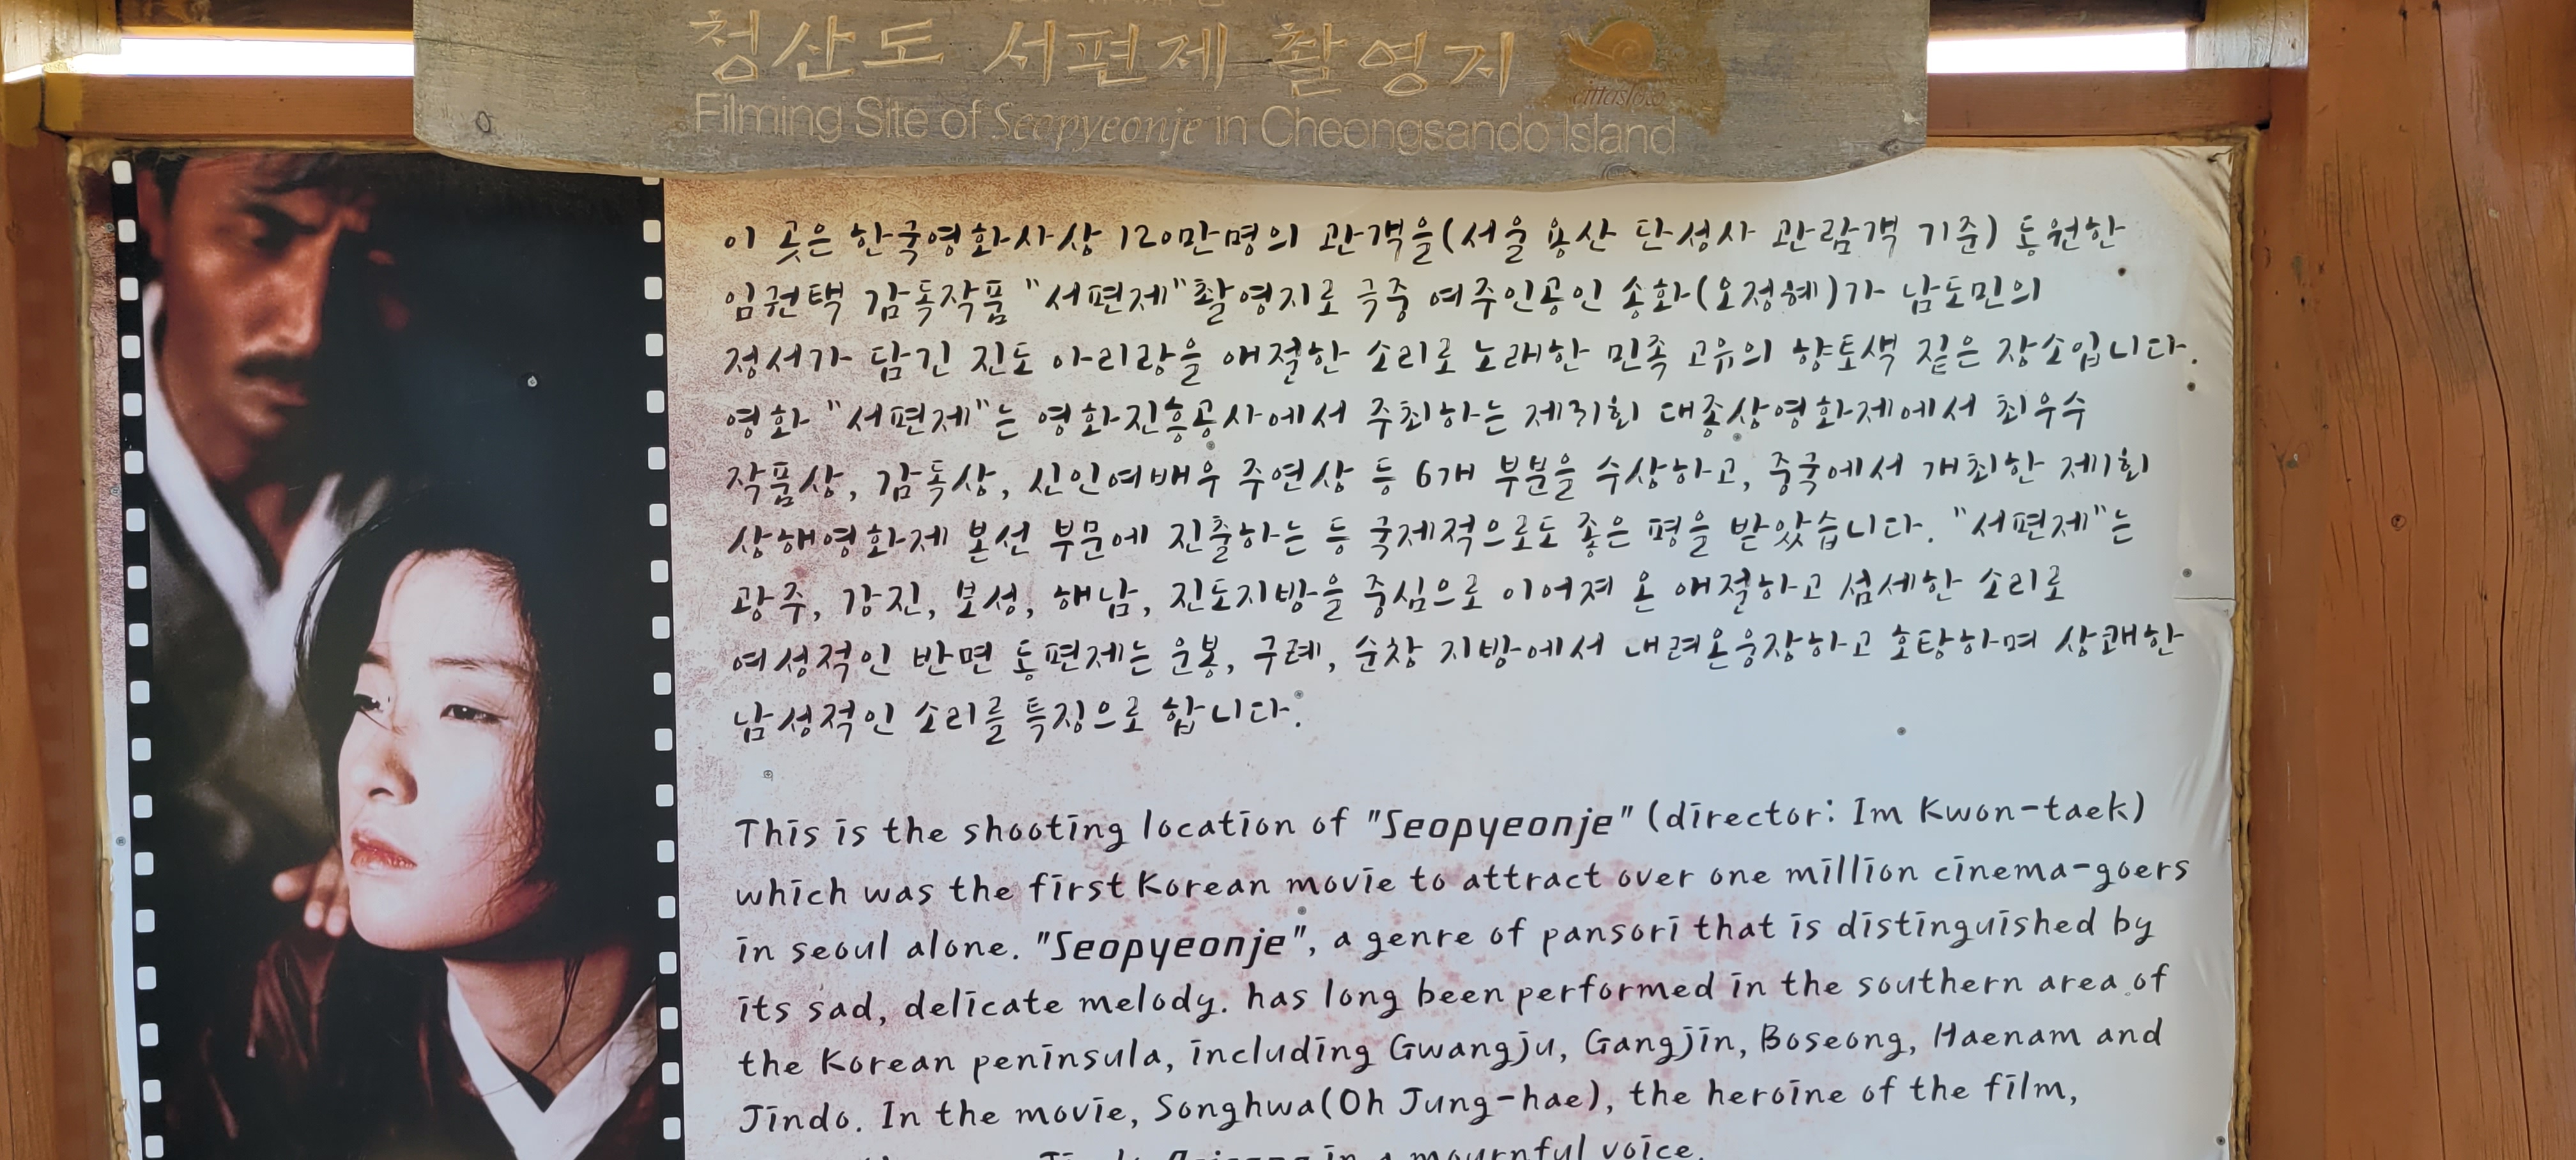 청산도 서편제 촬영지
cittaslow
Filming Site of Seopyeonje in Cheongsando Island
이 곳은 한국영화사상 120만명의 관객을(서울 용산 단성사 관람객 기준) 동원한
임권택 감독작품 "서편제"촬영지로 극중 여주인공인 송화(오정혜)가 남도민의
정서가 담긴 진도 아리랑을 애절한 소리로 노래한 민족 고유의 향토색 짙은 장소입니다.
영화 "서편제"는 영화진흥공사에서 주최하는 제31회 대종상영화제에서 최우수
작품상, 감독상, 신인여배우 주연상 등 6개 부분을 수상하고, 중국에서 개최한 제1회
상해영화제 본선 부문에 진출하는 등 국제적으로도 좋은 평을 받았습니다. "서편제"는
광주, 강진, 보성, 해남, 진도지방을 중심으로 이어져 온 애절하고 섬세한 소리로
여성적인 반면 동편제는 운봉, 구례, 순창 지방에서 내려온웅장하고 호탕하며 상쾌한
남성적인 소리를 특징으로 합니다.
This is the shooting location of "Seopyeonje" (director: Im Kwon-taek)
which was the first Korean movie to attract over one million cinema-goers
in seoul alone. "Seopyeonje", a genre of pansori that is distinguished by
its sad, delicate melody. has long been performed in the southern area of
the Korean peninsula, including Gwangju, Gangjin, Boseong, Haenam and
Jindo. In the movie, Songhwa(Oh Jung-hae), the heroine of the film,
in a mournful voice.